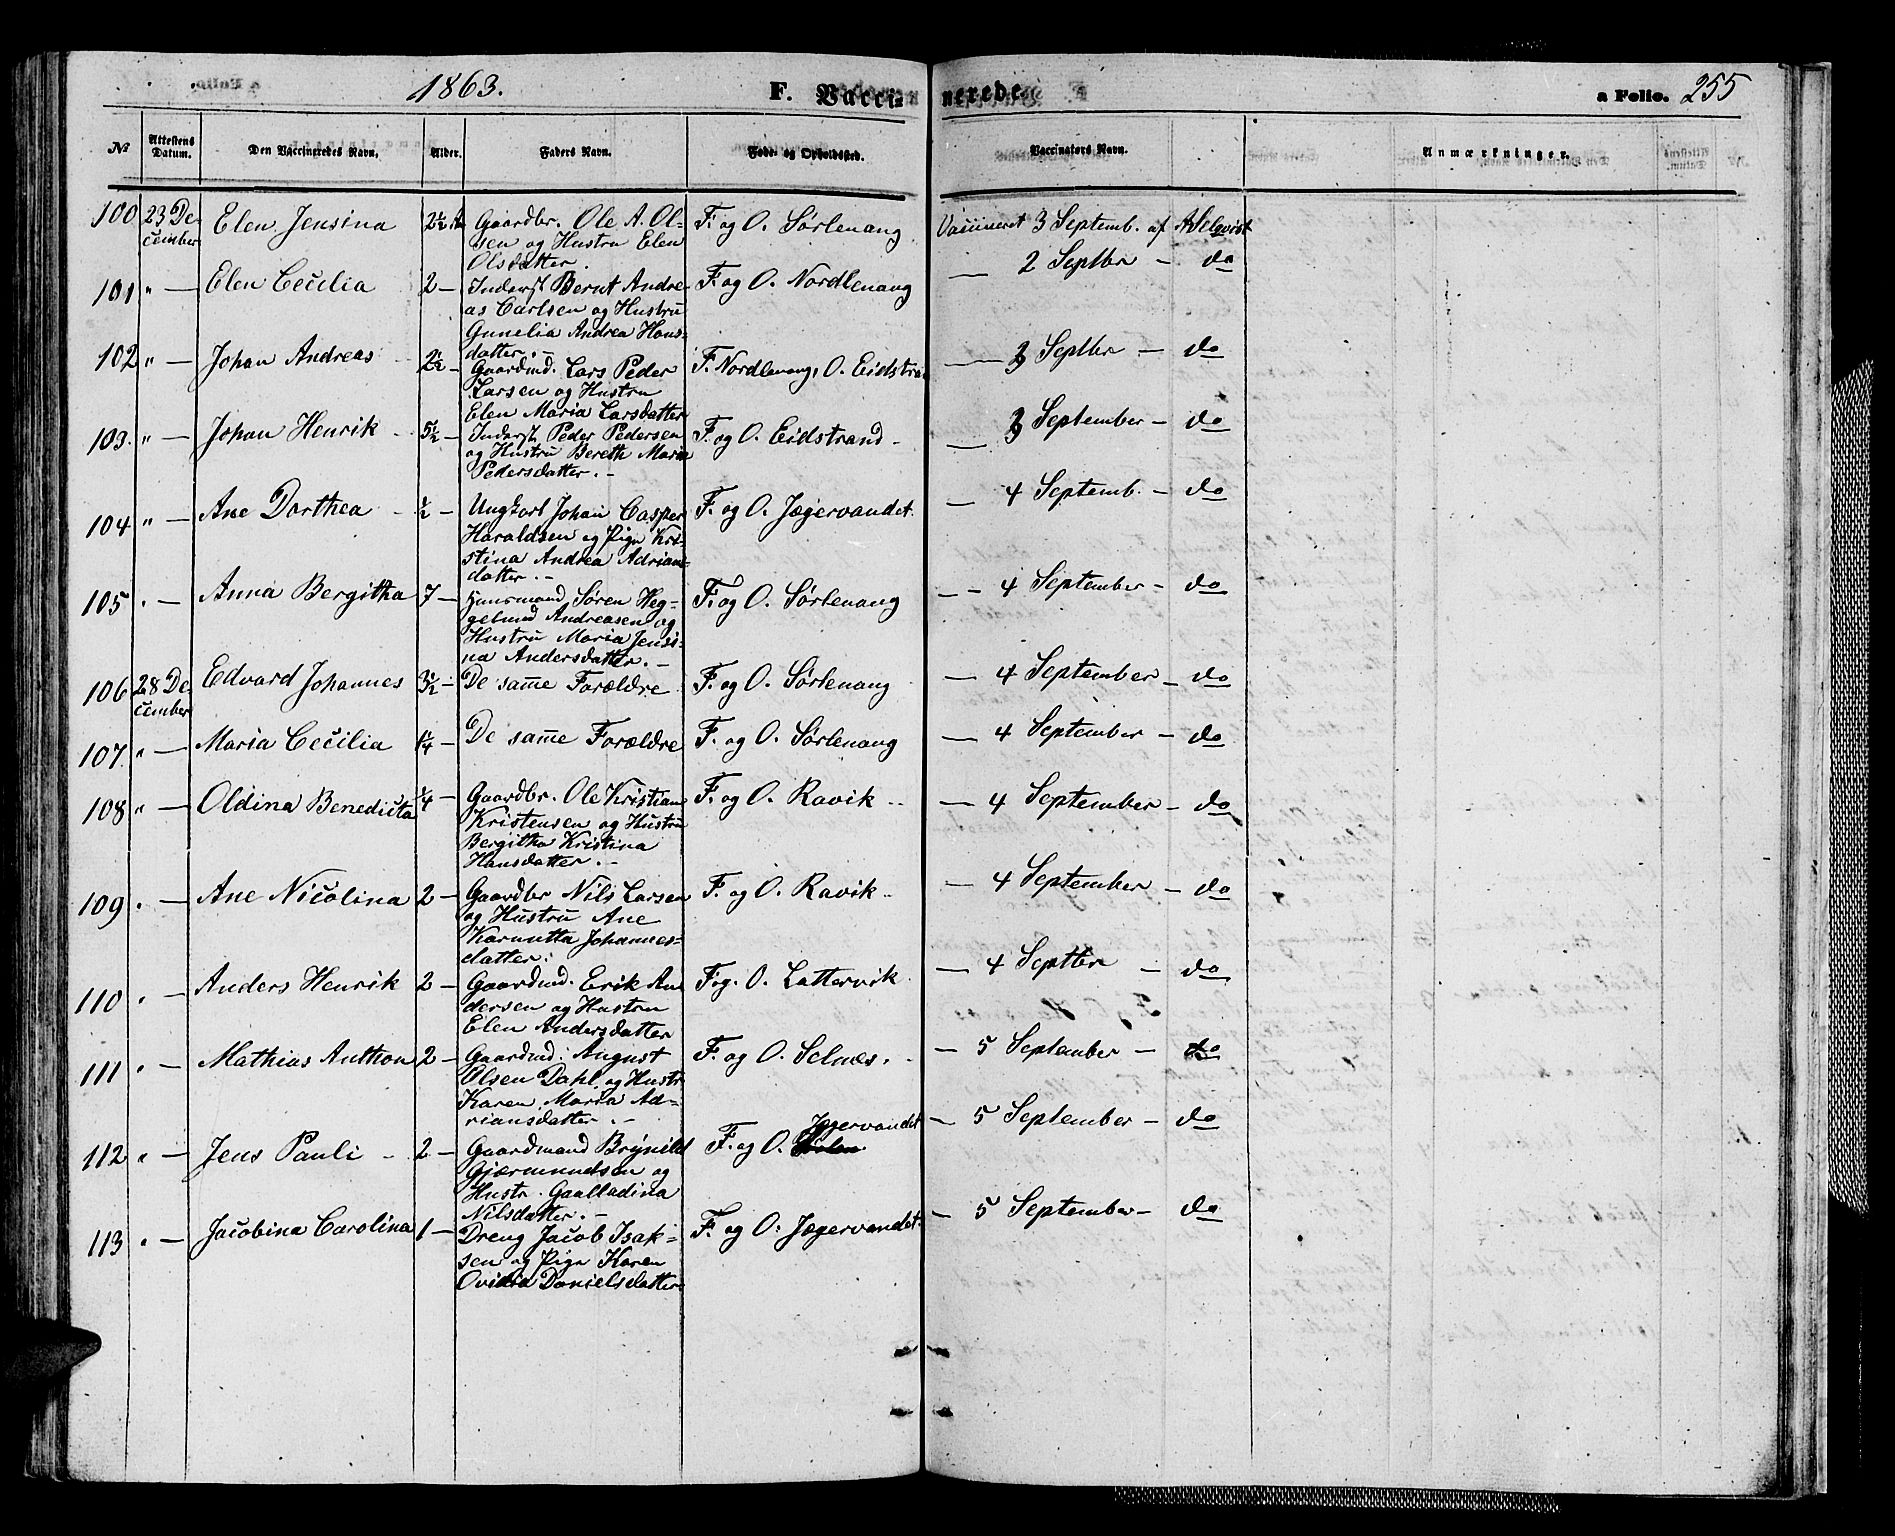 1863. F. Vacci- nerede. a Folio. 255
No Attestens Datum. Den Vaccineredes Navn. Alder. Faders Navn. Føde- og Opholdssted. Vaccinators Navn. Anmærkninger.
100 23 De Elen Jensina 2½ A Gaardbr. Ole A. Ol- F. og O. Sørlenang Vaccineret 3 Septemb. af
cember sen og Hustru Elen
Olsdatter.
101 " — Elen Cecilia 2 — Inderst Bernt Andre- F. og O. Nordlenang — 2 Septbr — do
as Carlsen og Hustru
Gunelia Andrea Hans-
datter. –
102 " — Johan Andreas 2½ — Gaardmd. Lars Peder F. Nordlenang, O. Eidstran — 3 Septbr — do
Larsen og Hustru
Elen Maria Larsdatter
103. " — Johan Henrik 5½ — Inderst Peder Pedersen F. og O. Eidstrand — 3 September — do
og Hustru Bereth Maria
Pedersdatter. –
104 " — Ane Dorthea ½ — Ungkarl Johan Casper F. og O. Jægervandet — 4 Septemb. — do
Haraldsen og Pige Kri-
stina Andrea Adrians-
datter. –
105 " — Anna Bergitha 7 — Huusmand Søren Heg- F. og O. Sørlenang — — 4 September — do
gelund Andreasen og
Hustru Maria Jensi-
na Andersdatter. –
106 28 De Edvard Johannes 3½ — De samme Forældre F. og O. Sørlenang — 4 September — do
cember
107 " — Maria Cecilia ¼ — De samme Forældre F. og O. Sørlenang — 4 September — do
108 " — Oldina Benedicta ¼ — Gaardbr. Ole Kristian F. og O. Ravik — 4 September — do
Kristensen og Hustru
Bergitha Kristina
Hansdatter. –
109 " — Ane Nicolina 2 — Gaardbr Nils Larsen F. og O. Ravik — 4 September — do
og Hustru Ane
Johannes-
datter.
110 " — Anders Henrik 2 — Gaardmd. Erik An F. og. O. Lattervik — 4 Septbr — do
dersen og Hustru
Elen Andersdatter
111 " — Mathias Anthon 2 — Gaardmd. August F. og O. Selnes. — 5 September — do
Olsen Dahl og Hustr.
Karen Maria Ad-
riansdatter. –
112 " — Jens Pauli 2 — Gaardmand Brynild F. og O. Jægervandet — 5 September — do
Gjærmundsen og
Hustr. Gaalladina
Nilsdatter. –
113 " — Jacobina Carolina 1 — Dreng Jacob Isak- F. og O. Jægervandet — 5 September — do
sen og Pige Karen
Ovidia Danielsdatter